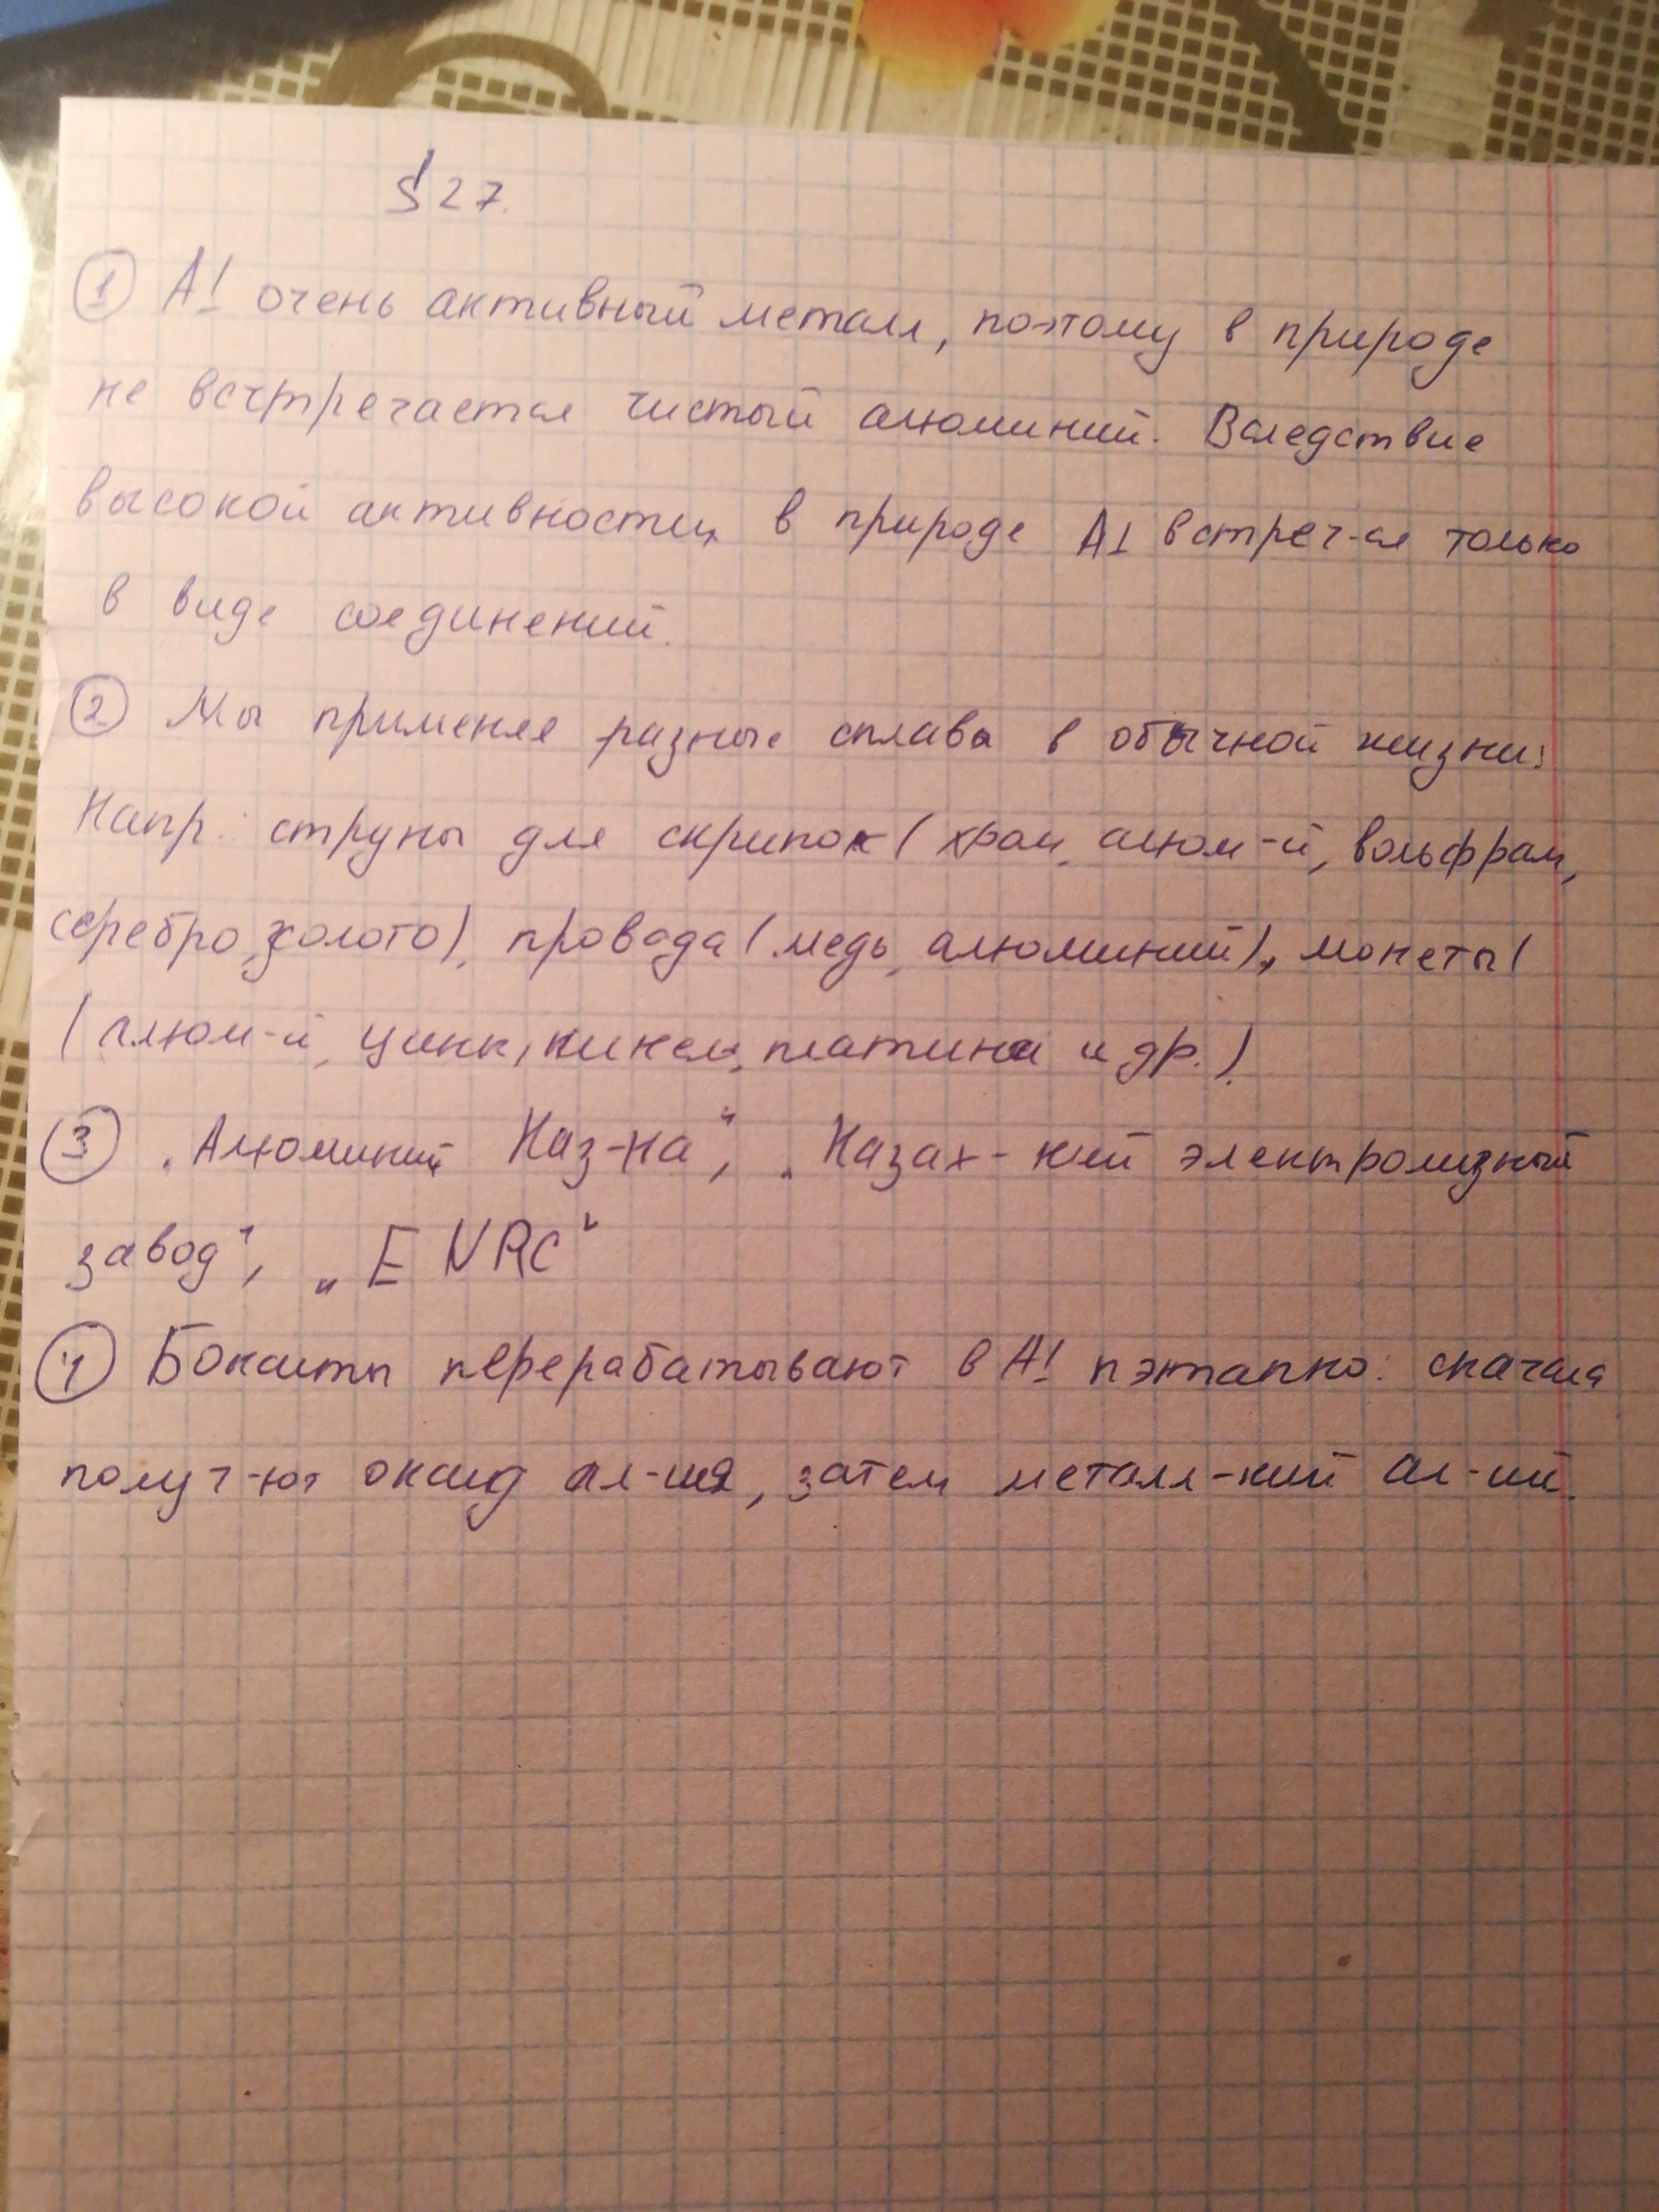 § 27.
① Al очень активный металл, поэтому в природе
не встртречается чистый алюминий. Вследствие
высокой активности, в природе Al встреч-ся только
в виде соединений.
② Мы применяе разные сплава в обычной жизни:
Напр.: струны для скрипок (хром, алюм-й, вольфрам,
серебро, золото), провода (медь, алюминий), монеты (
(алюм-й, цинк, никель, платина и др.).
③ „Алюминий Каз-на", „Казах-кий электролизный
завод", „ENRC"
④ Бокситы перерабатывают в Al пэтапно: сначала
получ-ют оксид ал-ия, затем металл-кий ал-ий.